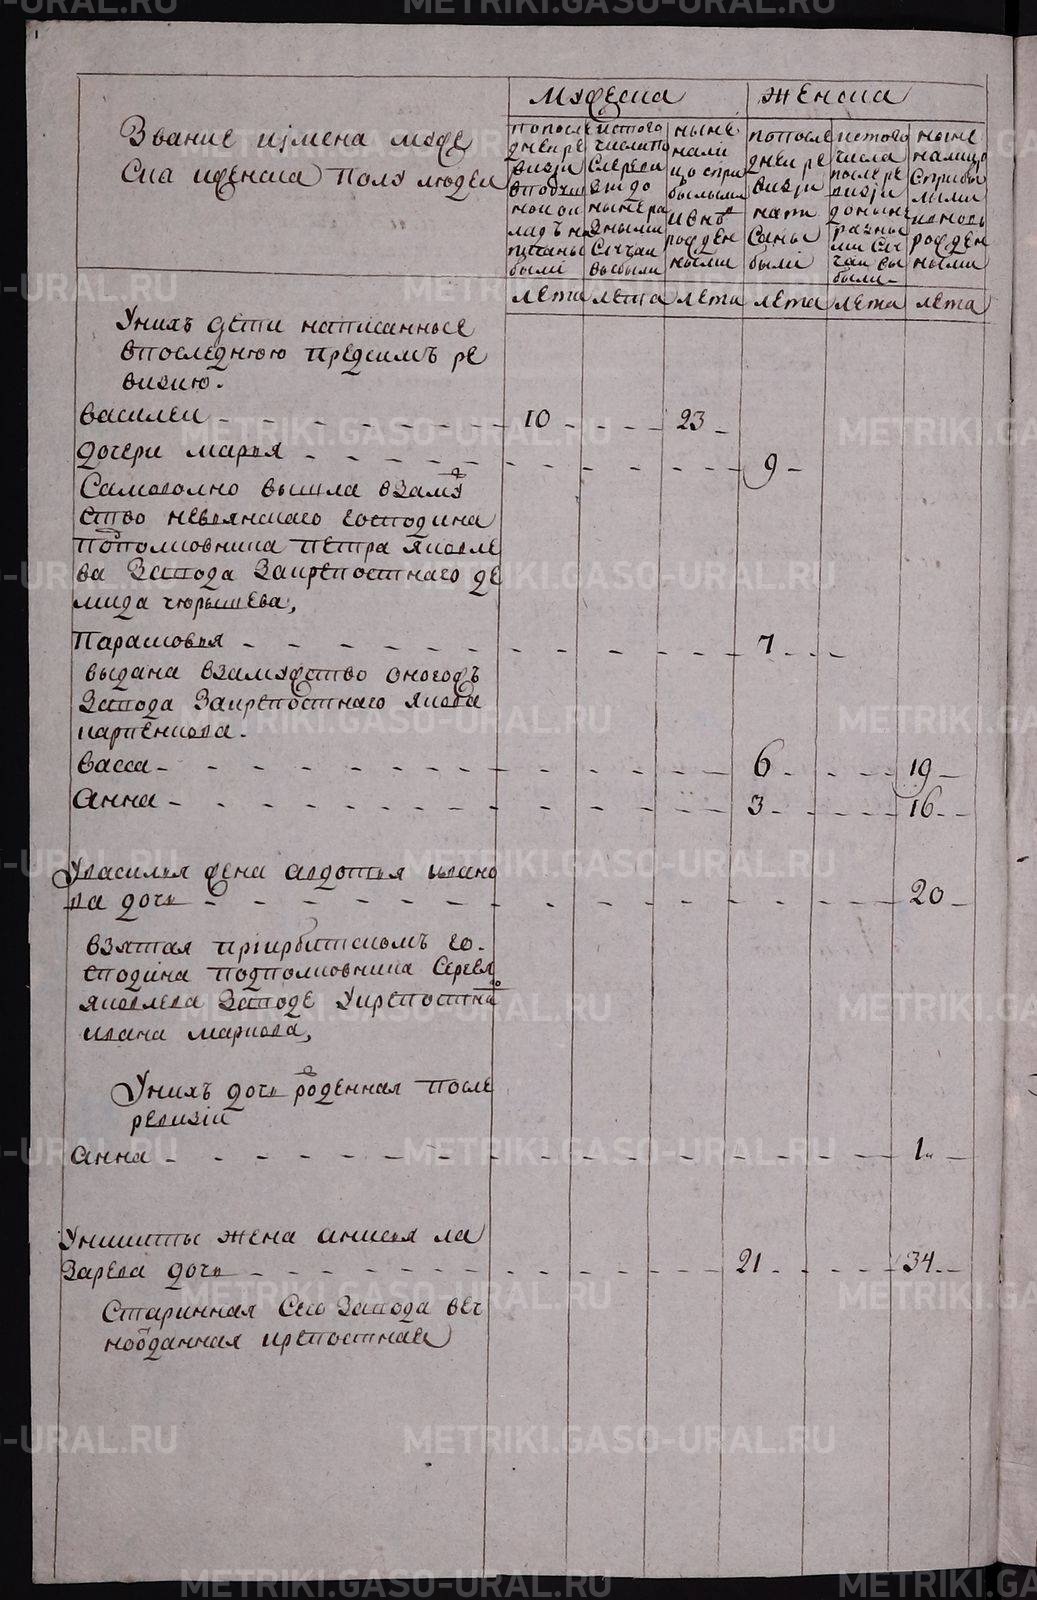 Мужеска
Женска
Звание и имена муже
ска и женска полу людей
по после
дней ре
визи
в подуш
ной ок
лад на
писаны
были
из того
числа по
слереви
зи до
ныне ра
зными
случаи
выбыли
ныне
нали
цо спри
былыми
и вно
рожден
ными
по после
дней ре
визи
напи
саны
были
из того
числа
после ре
визи
до ныне
разны
ми слу
чаи вы
были
ныне
налицо
сприбы
лыми
и вновь
рожден
ными
лета
лета
лета
лета
лета
лета
У них дети написанные
в последнюю пред сим ре
визию.
Василей 10 23
дочери Марья 9
Самовольно вышла в замуж
ство невьянскаго господина
подполковника Петра Яковле
ва завода за крепостнаго Де
мида Чюрышева,
Парасковья 7
выдана в замужство оногож
завода за крепостнаго Якова
Карпенкова.
Васса 6 19
Анна 3 16
У Василья жена Авдотья Ивано
ва дочь 20
взятая при ирбитском го-
сподина подполковника Сергея
Яковлева заводе у крепостнаго
Ивана Маркова,
У них дочь рожденная после
ревизии
Анна 1
У Никиты жена Анисья Ла
зарева дочь 21 34
Старинная сего завода веч
нотданная крепостная
METRIKI.GASO-URAL.RU